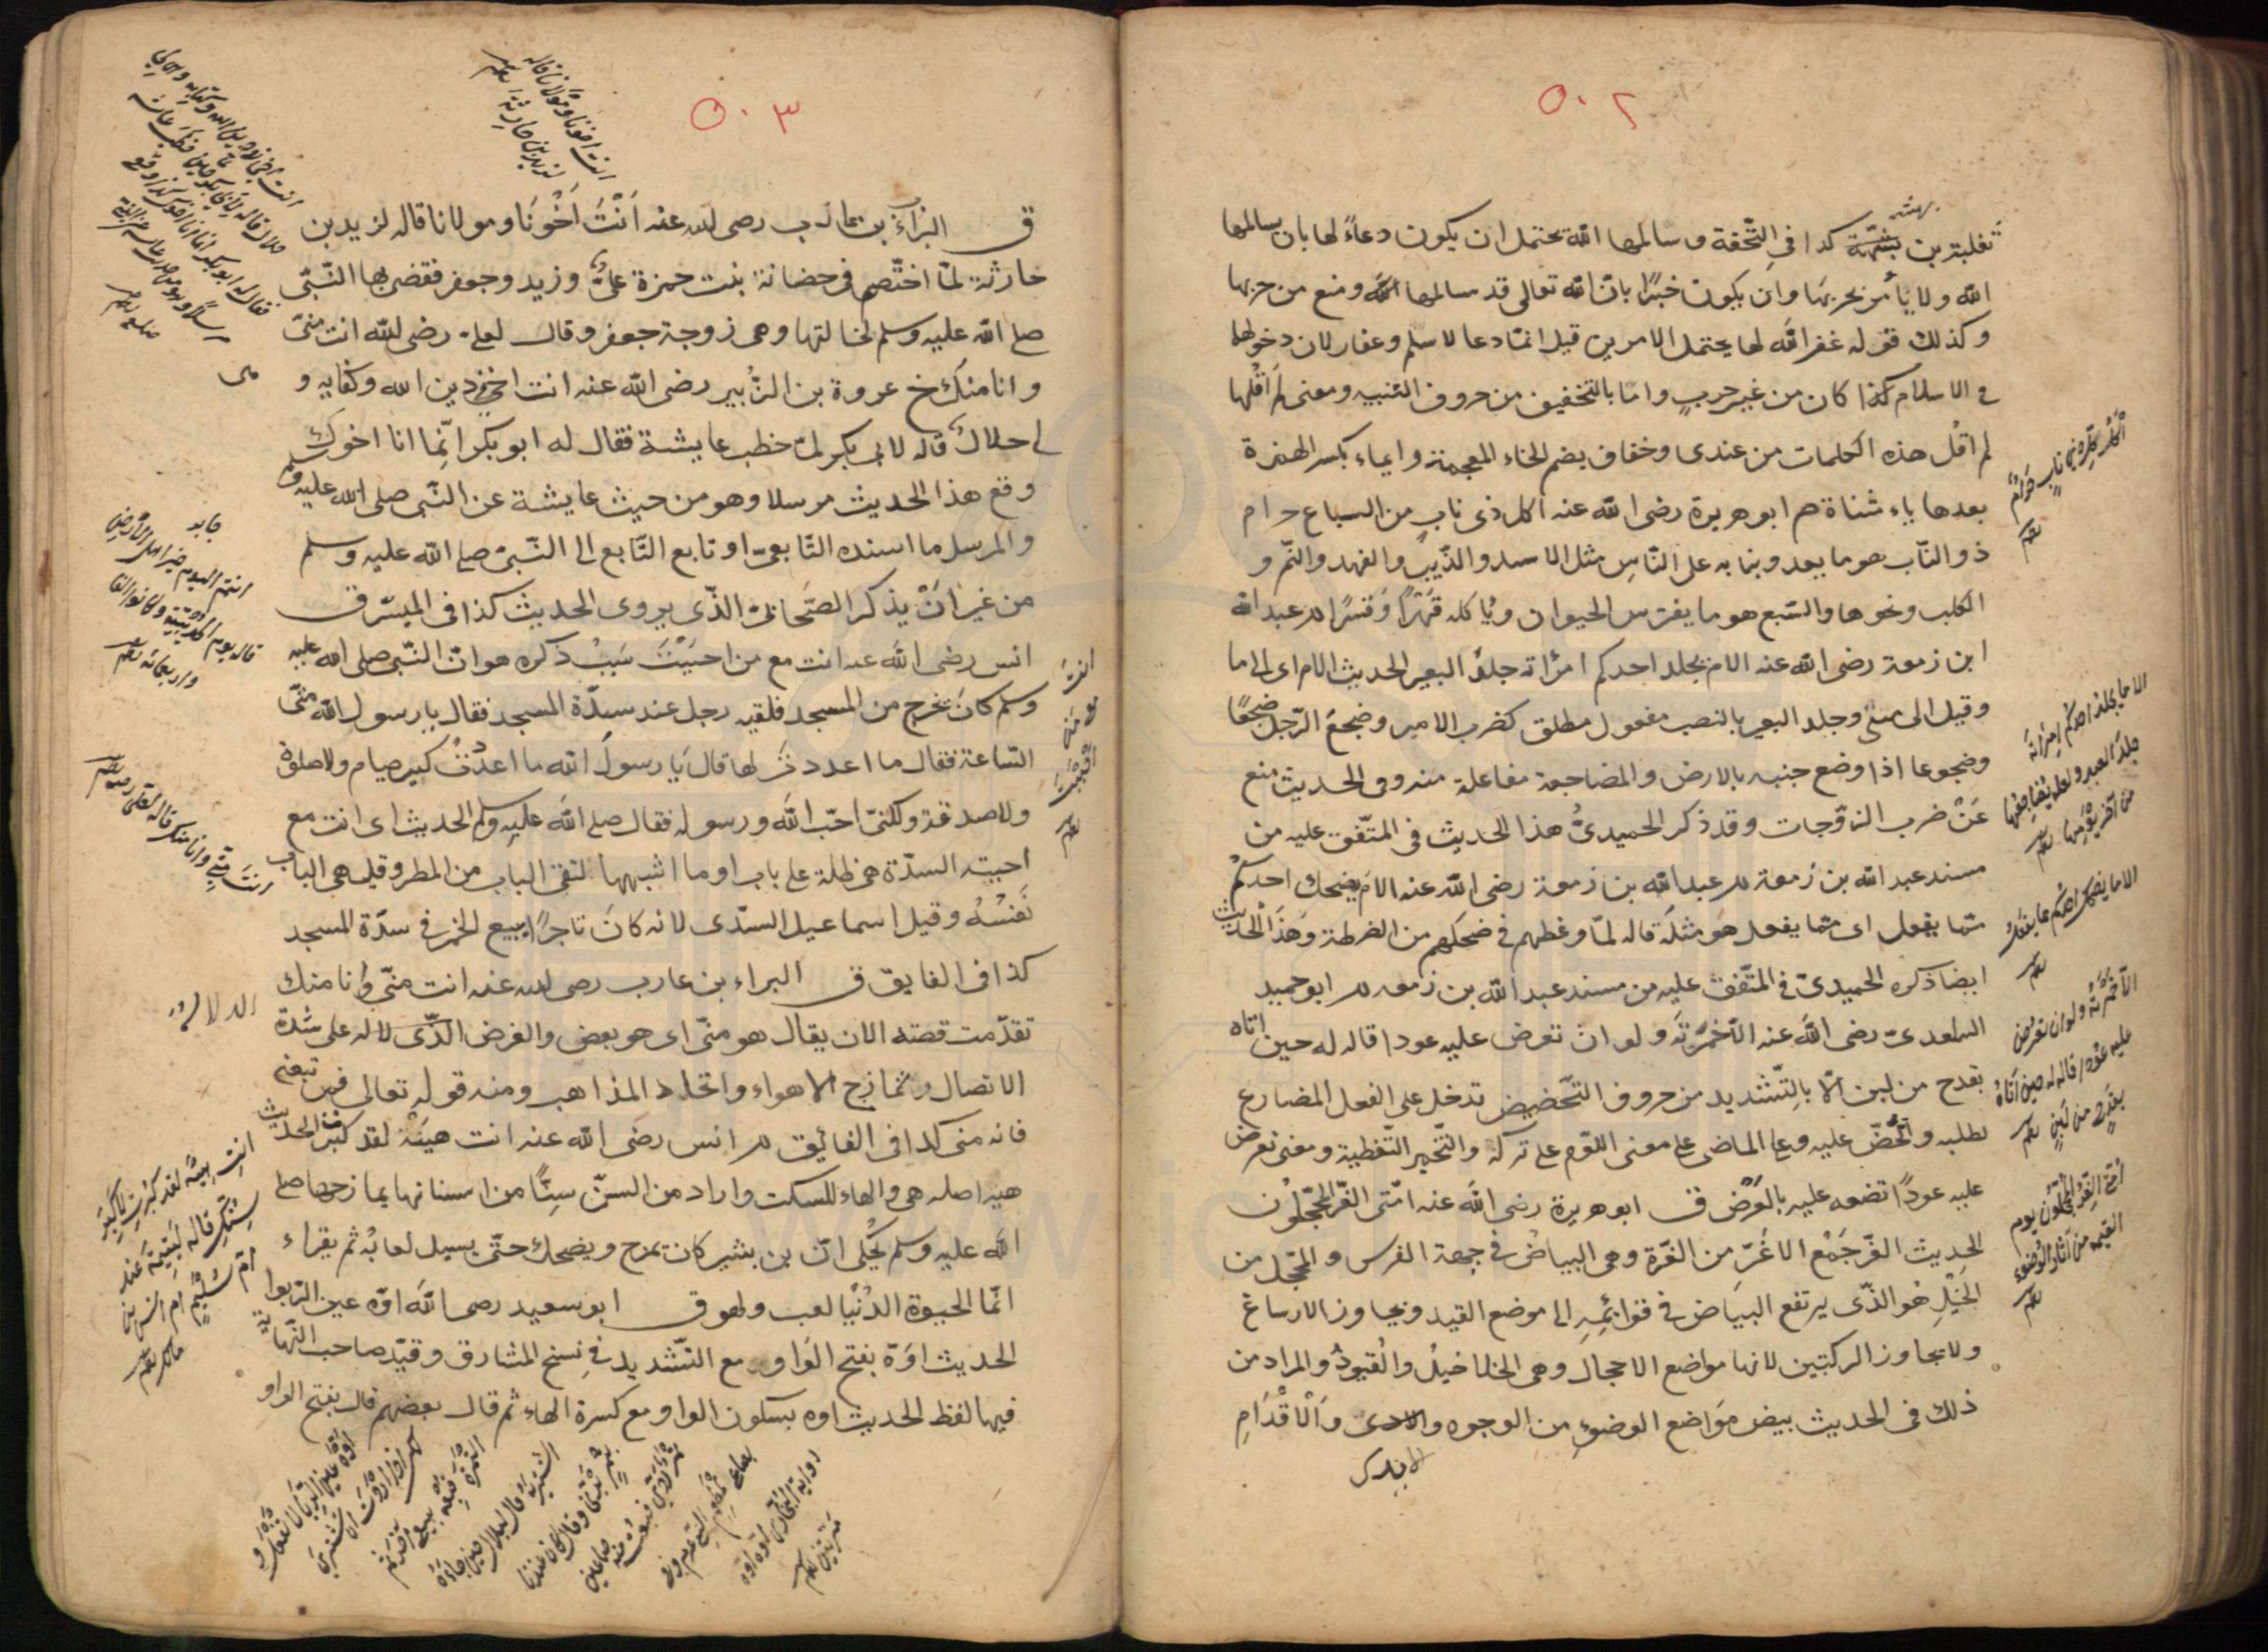 ٥٠٢
ثعلبة بن بهثة كدا في التّحفة و سالمها الله يحتمل ان يكون دعاءً لها بان يسالمها
الله ولا يأمر بحربها وان يكون خبرًا بانّ الله تعالى قد سالمها الله ومنع من حربها
وكذلك قوله غفر الله لها يحتمل الامرين قيل انما دعا لاسلم وغفار لان دخولهما
في الاسلام كذا كان من غير حرب واما بالتخفيف من حروف التنبيه ومعنى لم اقلها
لم اقل هذه الكلمات من عندى وخفاف بضم الخاء المعجمة وايماء بكسر الهمزة
بعدها ياء مثناة م ابو هريرة رضى الله عنه اكل ذى ناب من السباع حرام
ذو النّاب هو ما يعدو بنابه على النّاس مثل الاسد والذّيب والفهد والنّمر و
الكلب ونحوها والسّبع هو ما يفترس الحيوان وياكله قهرًا وقسرًا خ عبد الله
ابن زمعة رضى الله عنه الام يجلد احدكم امرأته جلد البعير الحديث الام اى الى ما
وقيل الى متى وجلد البعير بالنصب مفعول مطلق كضرب الامير وضجع الرّجل ضجعًا
وضجوعا اذا وضع جنبه بالارض والمضاجعة مفاعلة منه وفى الحديث منع
عن ضرب الزّوجات وقد ذكر الحميدىّ هذا الحديث فى المتّفق عليه من
مسند عبد الله بن زمعة خ عبد الله بن زمعة رضى الله عنه الام يضحك احدكم
ممّا يفعل اى ممّا يفعل هو مثله قاله لمّا وعظهم فى ضحكهم من الضرطة وهذا الحديث
ايضا ذكره الحميدىّ فى المتّفق عليه من مسند عبد الله بن زمعه خ ابو حميد
الساعدىّ رضى الله عنه الّا خمّرته ولو ان تعرض عليه عودا قاله له حين اتاه
بقدح من لبن الّا بالتشديد من حروف التّحضيض تدخل على الفعل المضارع
لطلبه والحضّ عليه وعلى الماضى على معنى اللّوم على تركه والتّخمير التّغطية ومعنى تعرض
عليه عودًا تضعه عليه بالعرض ق ابو هريرة رضى الله عنه امّتى الغرّ المحجّلون
الحديث الغرّ جمع الاغرّ من الغرّة وهى البياض فى جبهة الفرس والمحجّل من
الخيل هو الذّى يرتفع البياض فى قوائمه الى موضع القيد ويجاوز الارساغ
ولا يجاوز الركبتين لانها مواضع الاحجال وهى الخلاخيل والقيود والمراد من
ذلك فى الحديث بيض مواضع الوضوء من الوجوه والايدى والاقدام
اكل كلّ ذى ناب حرام
الا ما يجلد احدكم امرأته
جلد العبد ولعله يضاجعها
من آخر يومها
الا ما يضحك احدكم مما يفعل
الّا خمّرته ولو ان تعرض
عليه عودا قاله له حين اتاه
بقدح من لبن
امّتى الغرّ المحجّلون يوم
القيمة من آثار الوضوء
٥٠٣
ق البراء بن عازب رضى الله عنه انت اخونا ومولانا قاله لزيد بن
حارثة لمّا اختصم فى حضانة بنت حمزة علىّ وزيد وجعفر فقضى بها النّبى
صلى الله عليه وسلم لخالتها وهى زوجة جعفر وقال لعلى رضى الله انت منّى
وانا منك خ عروة بن الزّبير رضى الله عنه انت اخى فى دين الله وكتابه و
هى لى حلال قاله لابى بكر لمّا خطب عايشة فقال له ابو بكر انّما انا اخوك
وقع هذا الحديث مرسلا وهو من حيث عايشة عن النّبى صلى الله عليه وسلم
والمرسل ما اسنده التّابعىّ او تابع التّابع الى النّبىّ صلى الله عليه وسلم
من غير ان يذكر الصّحابىّ الذّى يروى الحديث كذا فى الميسّر ق
انس رضى الله عنه انت مع من احببت سبب ذكره هو انّ النّبى صلى الله عليه
وسلم كان يخرج من المسجد فلقيه رجل عند سدّة المسجد فقال يا رسول الله متى
السّاعة فقال ما اعددت لها قال يا رسول الله ما اعددت كبير صيام ولا صلوة
ولا صدقة ولكنّى احبّ الله ورسوله فقال صلى الله عليه وسلم الحديث اى انت مع
احببته السدّة هى ظلة على باب او ما اشبهها لتقى الباب من المطر وقيل هى الباب
نفسه وقيل اسماعيل السدّى لانه كان تاجرًا يبيع الخمر فى سدّة المسجد
كذا فى الفايق ق البراء بن عازب رضى الله عنه انت منّى وانا منك
تقدّمت قصته الان يقال هو منّى اى هو بعضى والغرض الذّى لاله على شدّة
الاتصال وتمازج الاهواء واتحاد المذاهب ومنه قوله تعالى فمن تبعنى
فانه منى كذا فى الفائق م انس رضى الله عنه انت هيه لقد كبرت الحديث
هيه اصله هى والهاء للسكت واراد من السنّ سنًّا من اسنانها يمازحها صلى
الله عليه وسلم يحكى انّ بن بشير كان يمزح ويضحك حتّى يسيل لعابه ثم يقراء
انّما الحيوة الدّنيا لعب ولهو ق ابو سعيد رضى الله اوّه عين الرّبوا
الحديث اوّه بفتح الواو مع التّشديد فى نسخ المشارق وقيّد صاحب النّهاية
فيها لفظ الحديث اوه بسكون الواو مع كسرة الهاء ثم قال بعضهم قال بفتح الواو
انت اخونا ومولانا قاله
لزيد بن حارثة
انت اخى فى دين الله وكتابه وهى لى
حلال قاله لابى بكر حين خطب عايشة
فقال له ابو بكر انما انا اخوك كذا وقع
انتم اليوم خير اهل الارض
قاله يوم الحديبية وكانوا الفا
واربعمائة
انت مع من احببت
انت منّى وانا منك قاله لعلى
انت هيه لقد كبرت لا كبر
سنك قاله ليتيمة عند
امّ سليم ام انس بن
مالك